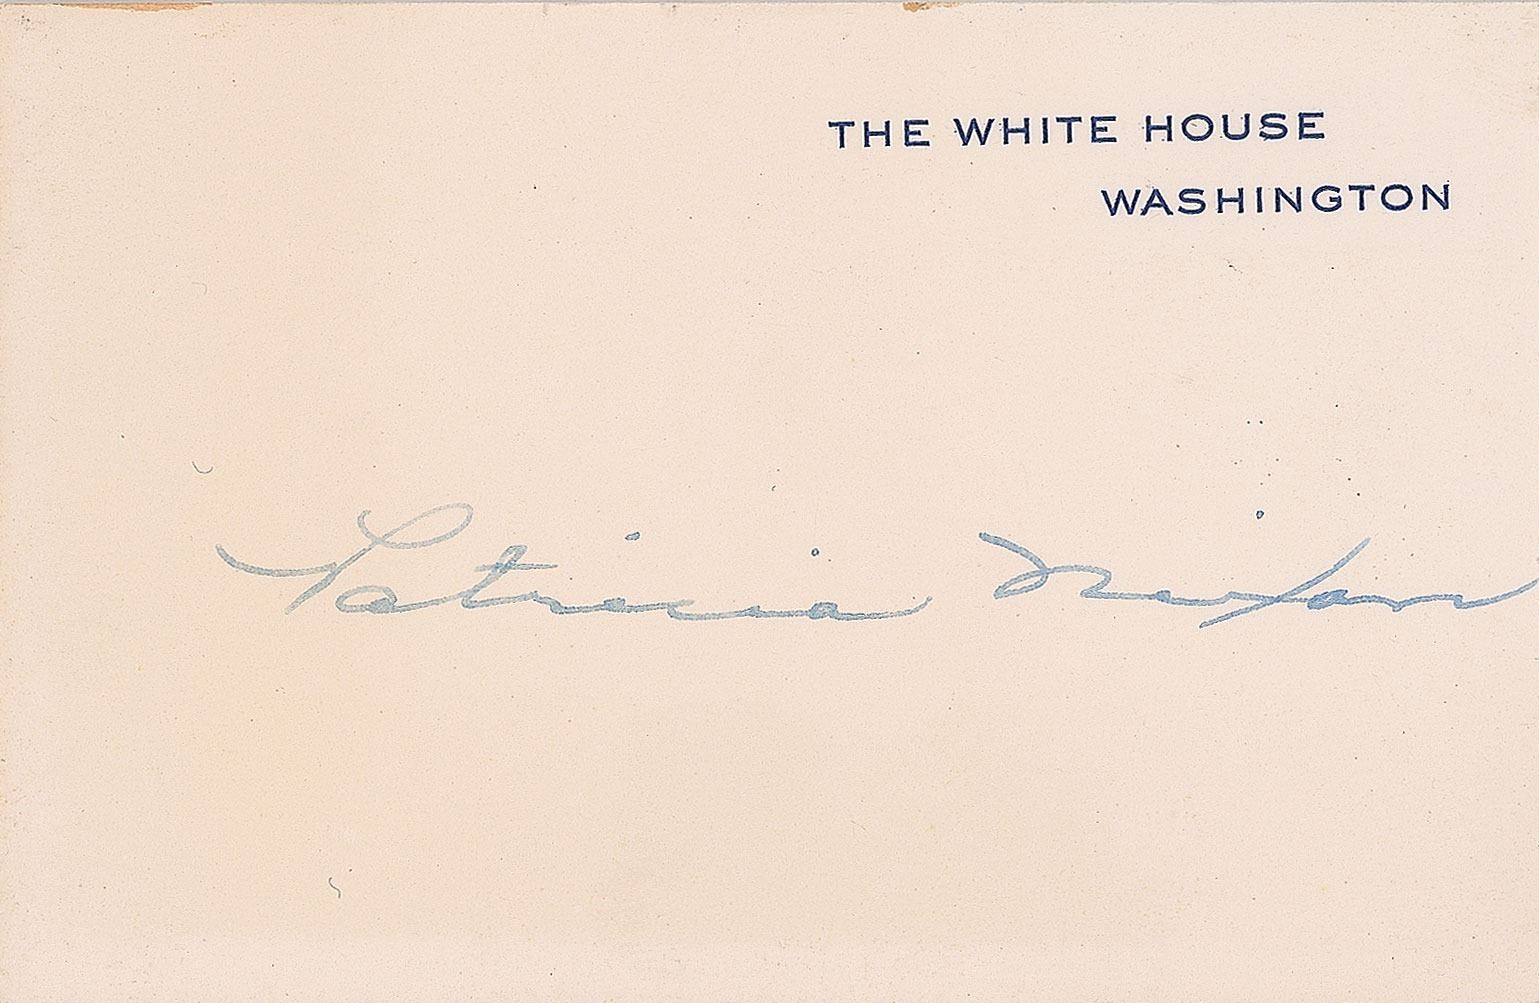 THE WHITE HOUSE
WASHINGTON
Patricia Nixon